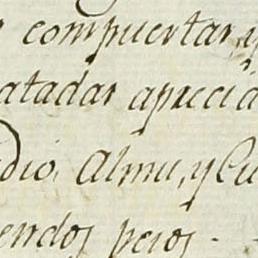 compuertar, y
atadar aprecia
dio, Almu, y Cu
endos peros.